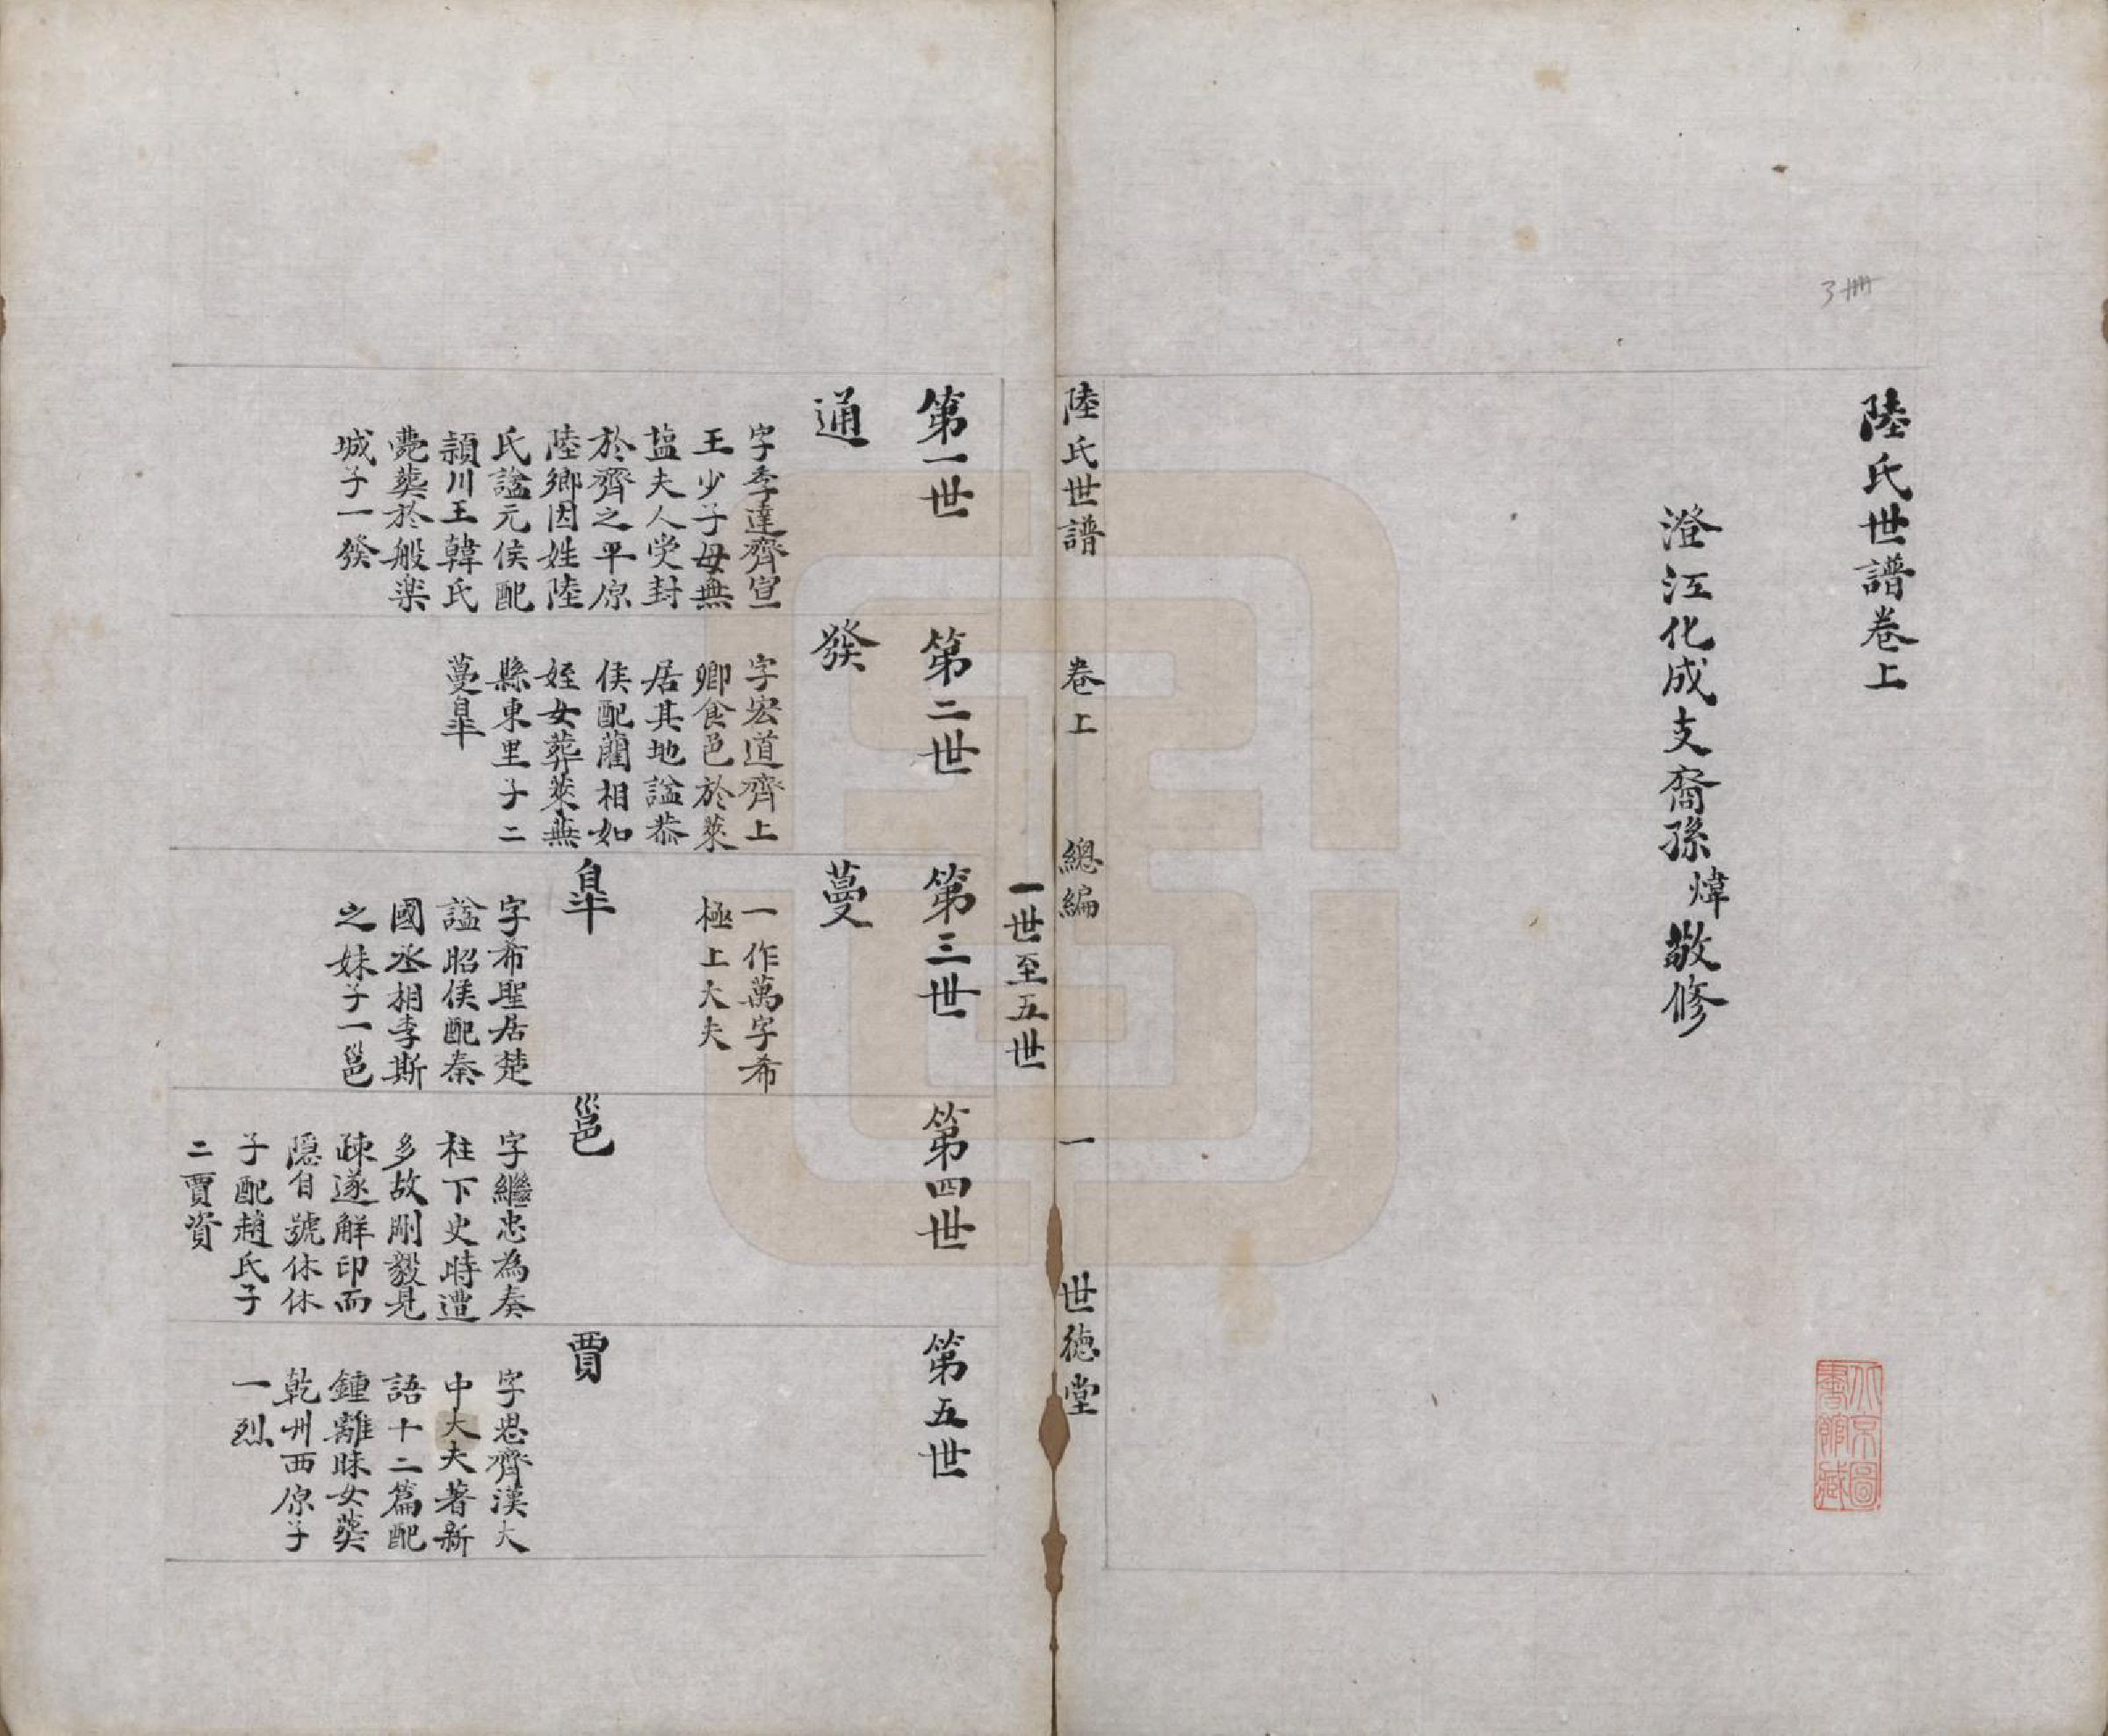 3冊
陸氏世譜卷上
澄江化成支裔孫煒敬修
北京圖
書館藏
陸氏世譜 卷上 總編 一 世德堂
一世至五世
第一世
通
字季達齊宣
王少子母無
塩夫人受封
於齊之平原
陸鄉因姓陸
氏諡元侯配
頴川王韓氏
薨葬於般樂
城子一發
第二世
發
字宏道齊上
卿食邑於萊
居其地諡恭
侯配藺相如
姪女葬萊蕪
縣東里子二
蔓皐
第三世
蔓
一作萬字希
極上大夫
皐
字希聖居楚
諡昭侯配秦
國丞相李斯
之妹子一邕
第四世
邕
字繼忠為秦
柱下史時遭
多故剛毅見
疎遂解印而
隱自號休休
子配趙氏子
二賈資
第五世
賈
字思齊漢大
中大夫著新
語十二篇配
鍾離昧女葬
乾州西原子
一烈